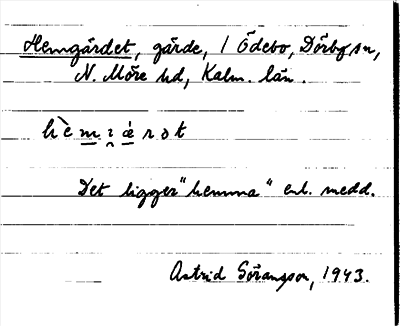 Hemgärdet, gärde, 1 Ödebo, Dörby sn,
N. Möre hd, Kalm. län.
hèmɪ̯ǽrət
Det ligger "hemma" enl. medd.
Astrid Göransson, 1943.